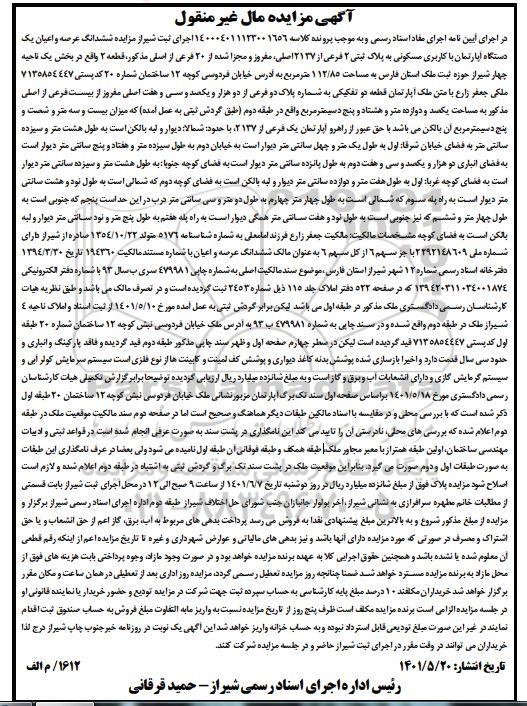 آگهی مزایده مال غیر منقول
در اجرای آیین نامه اجرای مفاد اسناد رسمی و به موجب پرونده کلاسه ۱۴۰۰۰۴۰۱۱۱۲۳۰۰۱۶۵۶ اجرای ثبت شیراز مزایده ششدانگ عرصه و اعیان یک
دستگاه آپارتمان با کاربری مسکونی به پلاک ثبتی ۲ فرعی از ۲۱۳۷ اصلی، مفروز و مجزا شده از ۲۰ فرعی از اصلی مذکور، قطعه ۲ واقع در بخش یک ناحیه
چهار شیراز حوزه ثبت ملک استان فارس به مساحت ۱۱۲/۸۵ مترمربع به آدرس خیابان فردوسی کوچه ۱۲ ساختمان شماره ۲۰ کدپستی ۷۱۳۵۸۵۴۴۴۷
ملکی جعفر زارع با متن ملک آپارتمان قطعه دو تفکیکی به شماره پلاک دو فرعی از دو هزار و یکصد و سی و هفت اصلی مفروز از بیست فرعی از اصلی
مذکور به مساحت یکصد و دوازده متر و هشتاد و پنج دسیمترمربع واقع در طبقه دوم (طبق گردش ثبتی به عمل آمده) که میزان بیست و سه متر و شصت و
پنج دسیمترمربع آن بالکن می باشد با حق عبور از راهرو آپارتمان یک فرعی از ۲۱۳۷، با حدود: شمالا: دیوار و لبه بالکن است به طول هشت متر و سیزده
سانتی متر به فضای خیابان شرقا: اول به طول یک متر و چهل سانتی متر دیوار است به خیابان دوم به طول سیزده متر و هفتاد و پنج سانتی متر دیوار است
به فضای انباری دو هزار و یکصد و سی و هفت دوم به طول پانزده سانتی متر دیوار است به فضای کوچه جنوبا: به طول هشت متر و سیزده سانتی متر دیوار
است به فضای کوچه غربا: اول به طول هفت متر و دوازده سانتی متر دیوار و لبه بالکن است به فضای کوچه دوم که شمالی است به طول نود و هشت سانتی
متر دیوار است به راه پله سوم که شمالی است به طول چهار متر چهارم به طول دو متر و سی سانتی متر درب در این حد است پنجم که جنوبی است به
طول چهار متر و ششم که نیز جنوبی است به طول نود و هفت سانتی متر همگی دیوار است به راه پله هفتم به طول پنج متر و نود سانتی متر دیوار و لبه
بالکن است به فضای کوچه مشخصات مالکیت: مالکیت جعفر زارع فرزند امامعلی به شماره شناسنامه ۵۱۷۶ متولد ۱۳۵۴/۱۰/۲۲ صادره از شیراز دارای
شماره ملی ۲۲۹۲۱۴۸۶۰۹ با جز سهم ۶ از کل سهم ۶ به عنوان مالک ششدانگ عرصه و اعیان با شماره مستند مالکیت ۱۹۴۳۶۰ تاریخ ۱۳۹۴/۳/۳۰
دفترخانه اسناد رسمی شماره ۱۲ شهر شیراز استان فارس، موضوع سند مالکیت اصلی به شماره چاپی ۴۷۹۹۸۱ سری ب سال ۹۳ با شماره دفتر الکترونیکی
۱۳۹۴۲۰۳۱۱۰۳۴۰۰۱۸۷۴ که در صفحه ۵۲۲ دفتر املاک جلد ۱۱۵ ذیل شماره ۲۴۵۳ ثبت گردیده است و در تصرف مالک می باشد و طبق نظریه هیات
کارشناسان رسمی دادگستری ملک مذکور در طبقه اول می باشد لیکن برابر گردش ثبتی به عمل آمده مورخ ۱۴۰۱/۵/۱۰ از ثبت اسناد و املاک ناحیه ۴
شیراز ملک در طبقه دوم واقع شده و در سند چاپی به شماره ۴۷۹۹۸۱ ب ۹۳ به آدرس ملک خیابان فردوسی نبش کوچه ۱۲ ساختمان شماره ۲۰ طبقه
اول کدپستی ۷۱۳۵۸۵۴۴۴۷ قید گردیده است لیکن در سطر چهارم صفحه اول و ظهر سند چاپی مذکور طبقه دوم قید گردیده و فاقد پارکینگ و انباری و
حدود سی سال قدمت دارد و اخیرا بازسازی شده پوشش بدنه کاغذ دیواری و پوشش کف لمینت و کابینت ها از نوع فلزی است سیستم سرمایش کولر آبی و
سیستم گرمایش گازی و دارای انشعابات آب و برق و گاز است و به مبلغ شانزده میلیارد ریال ارزیابی گردیده توضیحا برابر گزارش تکمیلی هیات کارشناسان
رسمی دادگستری مورخ ۱۴۰۱/۵/۱۸ براساس صفحه اول سند تک برگ آپارتمان مزبور نشانی ملک خیابان فردوسی نبش کوچه ۱۲ ساختمان ۲۰ طبقه اول
ذکر شده است که با بررسی محلی و در مقایسه با اسناد مالکین طبقات دیگر هماهنگ و صحیح است اما در صفحه دوم سند مالکیت موقعیت ملک در طبقه
دوم اعلام شده که بررسی های محلی، نادرستی آن را تایید می کند این نامگذاری در پشت سند به صورت عرفی انجام شده است در قواعد ثبتی و ادبیات
مهندسی ساختمان، اولین طبقه همتراز با معبر مجاور ملک، طبقه همکف و طبقه فوقانی آن طبقه اول نامیده می شود ولی بعضا در عرف نامگذاری این طبقات
به صورت طبقات اول و دوم صورت می گیرد. بنابراین موقعیت ملک در پشت سند تک برگ و گردش ثبتی به اشتباه در طبقه دوم اعلام شده و لازم است
اصلاح شود مزایده پلاک فوق از مبلغ شانزده میلیارد ریال در روز دوشنبه تاریخ ۱۴۰۱/۶/۷ از ساعت ۹ صبح الی ۱۲ در محل اجرای ثبت شیراز بابت قسمتی
از مطالبات خانم مطهره سرافرازی به نشانی شیراز، آخر بولوار جانبازان جنب شورای حل اختلاف شیراز طبقه دوم اداره اجرای اسناد رسمی شیراز برگزار و
مزایده از مبلغ مذکور شروع و به بالاترین مبلغ پیشنهادی نقدا به فروش می رسد پرداخت بدهی های مربوط به آب، برق، گاز اعم از حق انشعاب و یا حق
اشتراک و مصرف در صورتی که مورد مزایده دارای آنها باشد و نیز بدهی های مالیاتی و عوارض شهرداری و غیره تا تاریخ مزایده اعم از اینکه رقم قطعی
آن معلوم شده یا نشده باشد و همچنین حقوق اجرایی کلا به عهده برنده مزایده خواهد بود و در صورت وجود مازاد، وجوه پرداختی بابت هزینه های فوق از
محل مازاد به برنده مزایده مسترد خواهد شد ضمنا چنانچه روز مزایده تعطیل رسمی گردد، مزایده روز اداری بعد از تعطیلی در همان ساعت و مکان مقرر
برگزار خواهد شد خریداران مکلفند ۱۰ درصد مبلغ پایه کارشناسی به حساب سپرده ثبت جهت شرکت در مزایده تودیع و حضور خریدار یا نماینده قانونی او
در جلسه مزایده الزامی است برنده مزایده مکلف است ظرف پنج روز از تاریخ مزایده نسبت به واریز مابه التفاوت مبلغ فروش به حساب صندوق ثبت اقدام
نمایند در غیر این صورت مبلغ تودیعی قابل استرداد نبوده و به حساب خزانه واریز خواهد شد این آگهی یک نوبت در روزنامه خبر جنوب چاپ شیراز درج لذا
خریداران می توانند در وقت مقرر در اجرای ثبت شیراز حاضر و در جلسه مزایده شرکت کنند.
تاریخ انتشار: ۱۴۰۱/۵/۲۰
۱۶۱۲/ م الف
رئیس اداره اجرای اسناد رسمی شیراز – حمید فرقانی